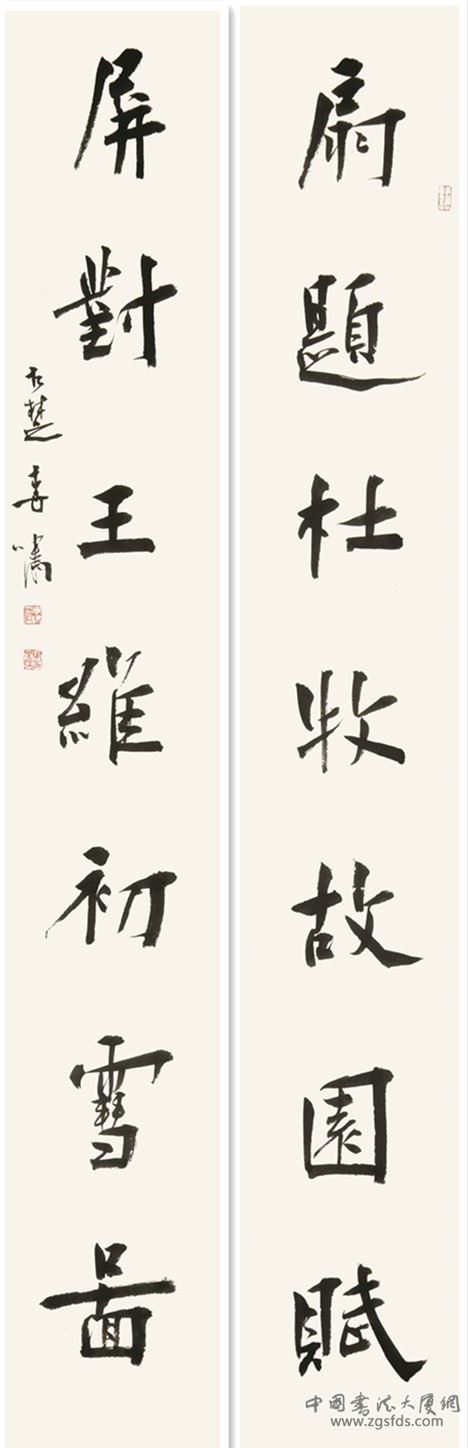 扇題杜牧故園賦
屏對王維初雪啚
古楚李嘯
中國書法大廈網
www.zgsfds.com